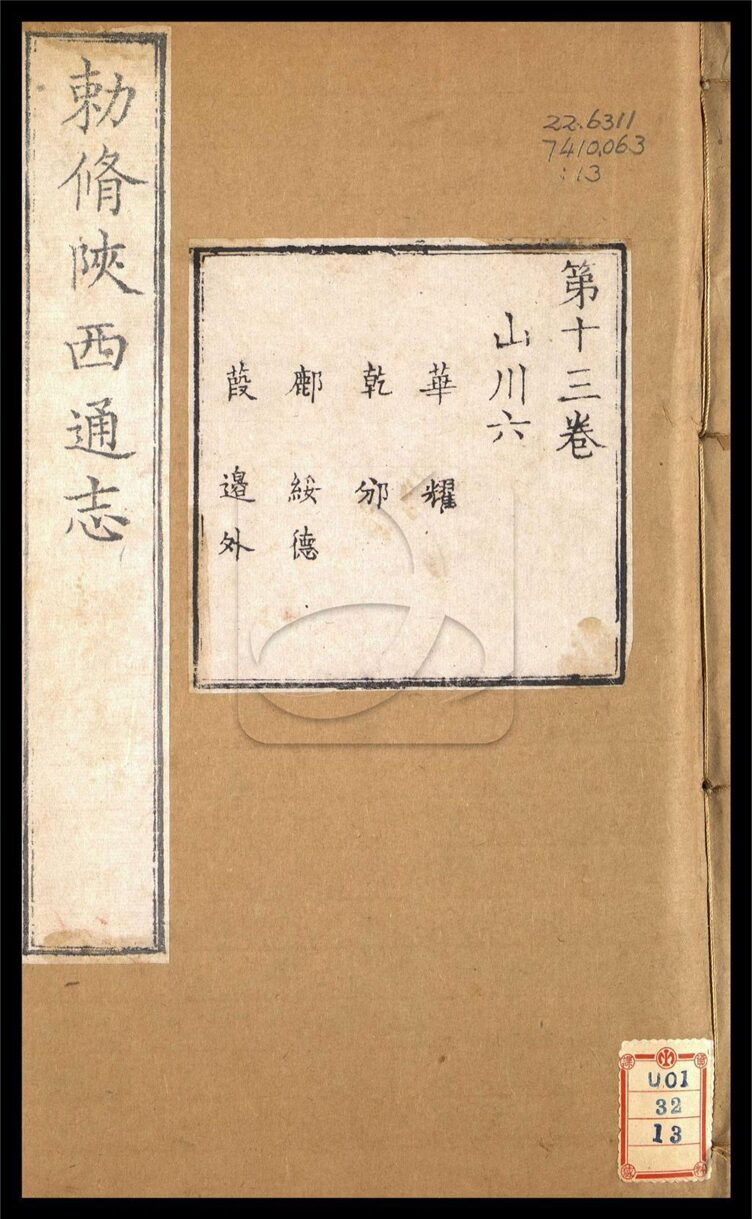 勅脩陝西通志
第十三卷
山川六
華 耀
乾 邠
鄜 綏德
葭 邉外
22.6311
7410.063
:13
U01
32
13